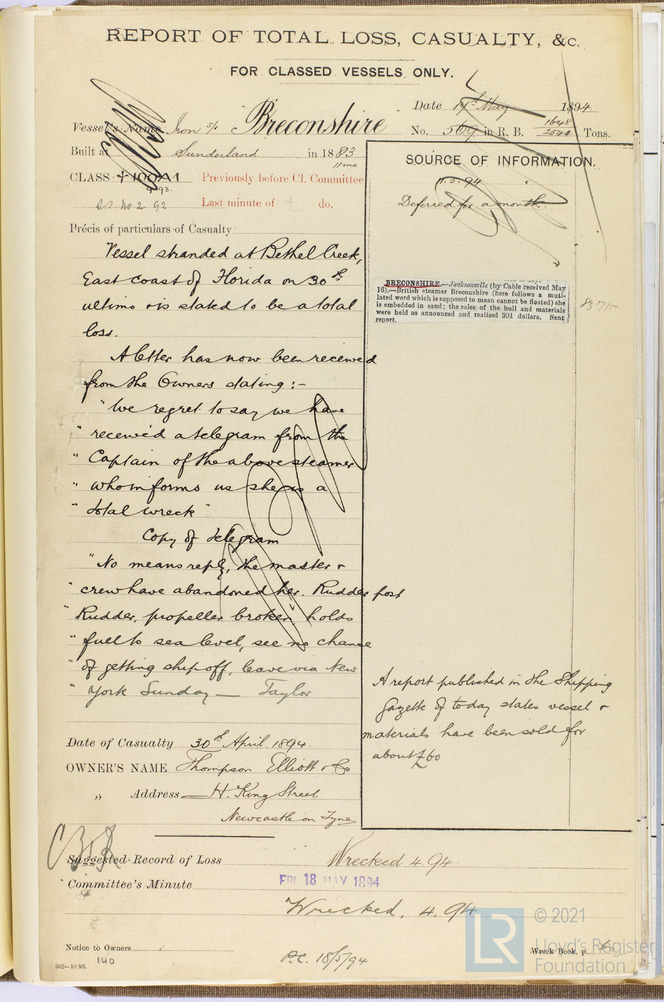 REPORT OF TOTAL LOSS, CASUALTY, &c.
FOR CLASSED VESSELS ONLY.
Date 17th May 1894
Vessel's Name Iron s/s "Breconshire
No. 569 in R. B. 1648 2544 Tons.
Built at Sunderland in 1883
11mo
CLASS +100A1 Previously before Cl. Committee
9.93.
s.s. No 2 92 Last minute of do.
Précis of particulars of Casualty
Vessel stranded at Bethel Creek,
East coast of Florida on 30th
ultimo & is stated to be a total
loss.
A letter has now been received
from the Owners stating :-
"We regret to say we have
" received a telegram from the
" Captain of the above steamer
" who informs us she is a
" total wreck"
Copy of telegram
"No means reply, the master &
" crew have abandoned her. Rudder post
" Rudder, propeller broken, holds
" full to sea level, see no chance
" of getting ship off, leave via New
" York Sunday — Taylor
SOURCE OF INFORMATION.
11.5.94
Deferred for a month.
BRECONSHIRE.—Jacksonville (by Cable received May
16).—British steamer Breconshire (here follows a muti-
lated word which is supposed to mean cannot be floated) she
is embedded in sand; the sales of the hull and materials
were held as announced and realised 301 dollars. Sent
report.
A report published in the Shipping
Gazette of to day states vessel &
materials have been sold for
about £60
Date of Casualty 30th April 1894.
OWNER'S NAME Thompson Elliott & Co
" Address H. King Street
Newcastle on Tyne
Suggested Record of Loss Wrecked 4.94
Committee's Minute FRI 18 MAY 1894
Wrecked. 4.94
Notice to Owners
140
P.C. 18/5/94
Wreck Book, p.
LR © 2021
Lloyd's Register
Foundation